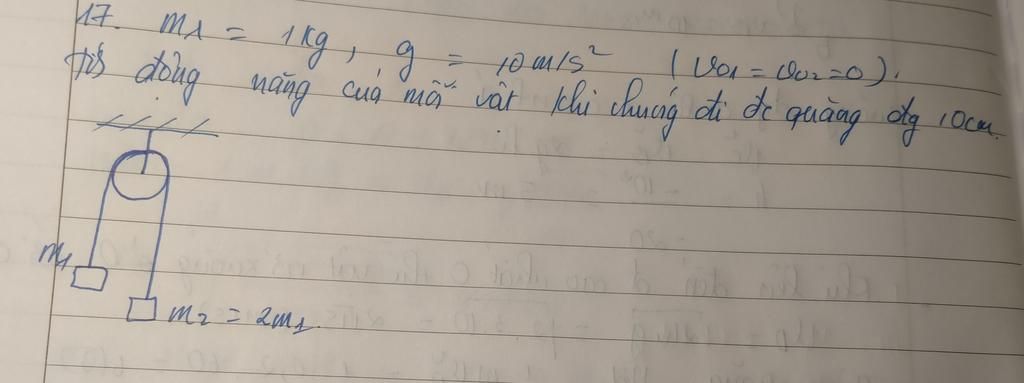 17. m1 = 1kg, g = 10m/s² (vo1 = vo2 = 0).
động năng của mỗi vật khi chúng đi đc quãng đg 10cm.
m1
m2 = 2m1.